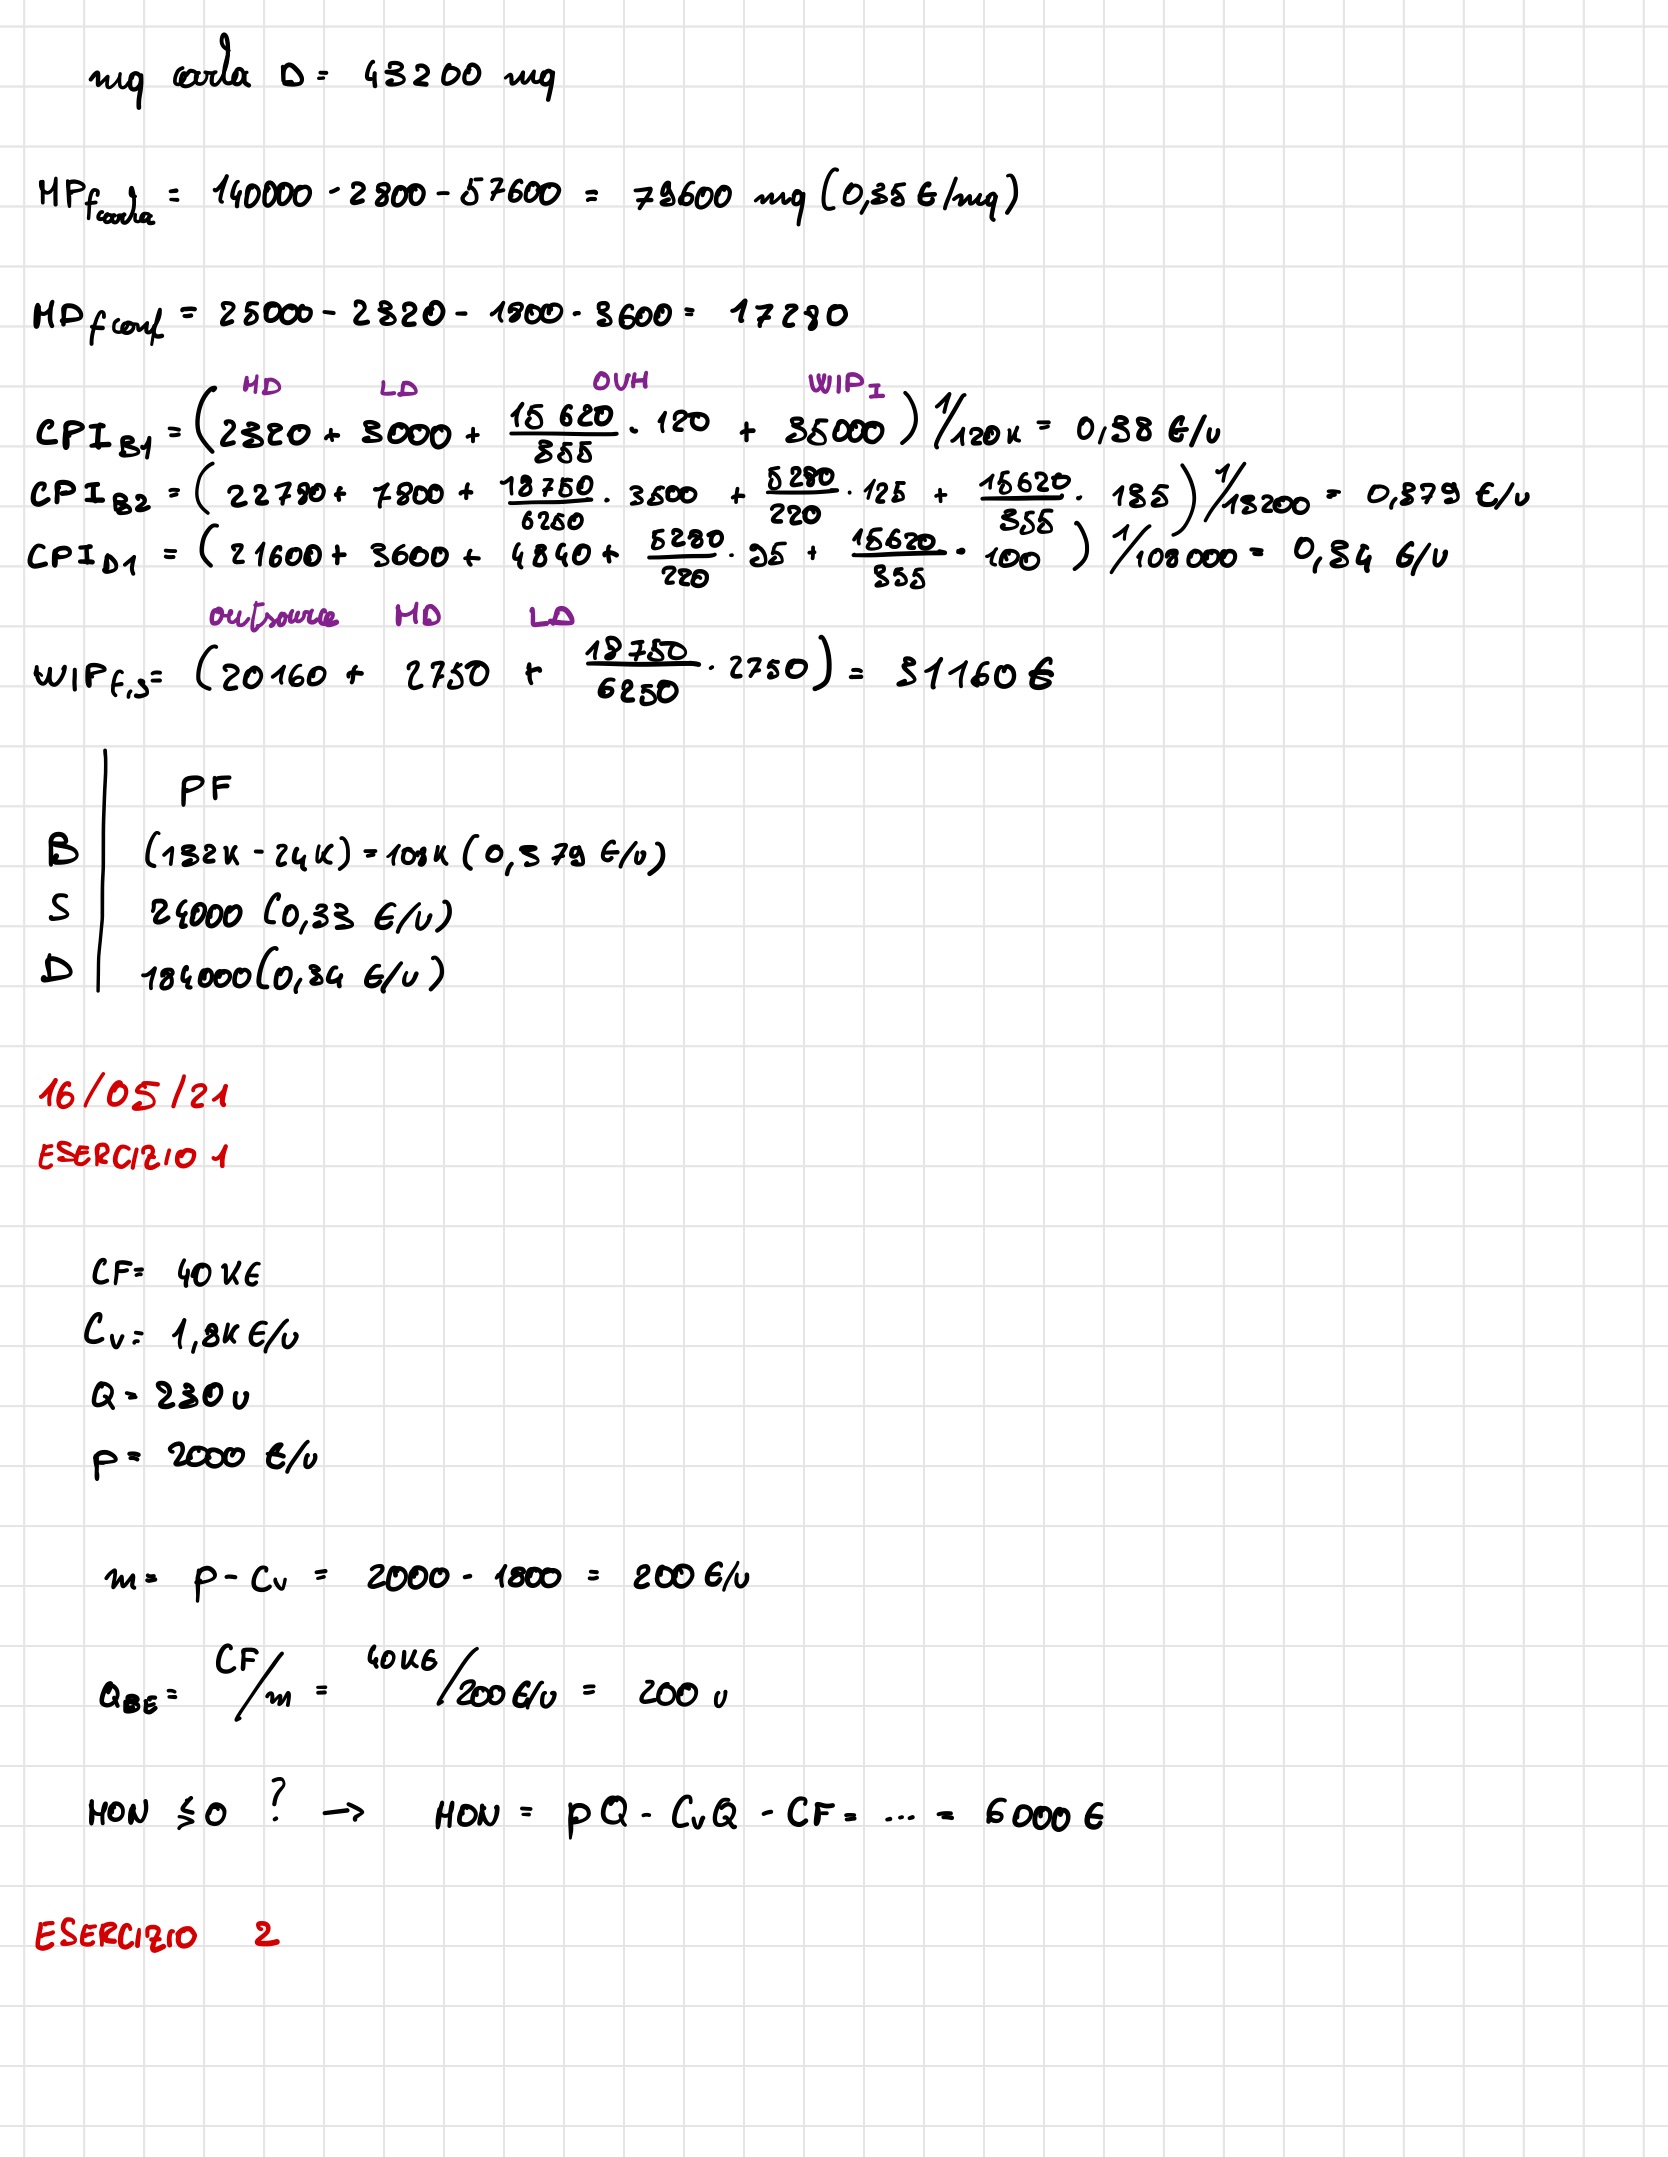 mq carta D = 43200 mq
MPf carta = 140000 - 2800 - 57600 = 79600 mq (0,35 €/mq)
MDf conf = 25000 - 2320 - 1800 - 3600 = 17280
MD LD OVH WIP_I
CPI_B1 = (2320 + 3000 + 15620/355 · 120 + 35000) 1/120K = 0,38 €/u
CPI_B2 = (22780 + 7800 + 18750/6250 · 3500 + 5280/220 · 125 + 15620/355 · 135) 1/13200 = 0,379 €/u
CPI_D1 = (21600 + 3600 + 4840 + 5280/220 · 95 + 15620/355 · 100) 1/108000 = 0,34 €/u
outsource MD LD
WIPf,s = (20160 + 2750 + 18750/6250 · 2750) = 31160 €
PF
B (132K - 24K) = 108K (0,379 €/u)
S 24000 (0,33 €/u)
D 184000 (0,34 €/u)
16/05/21
ESERCIZIO 1
CF = 40 K€
Cv = 1,8K €/u
Q = 230 u
p = 2000 €/u
m = p - Cv = 2000 - 1800 = 200 €/u
Q_BE = CF/m = 40K€/200 €/u = 200 u
MON ≤ 0 ? → MON = pQ - CvQ - CF = ... = 6000 €
ESERCIZIO 2